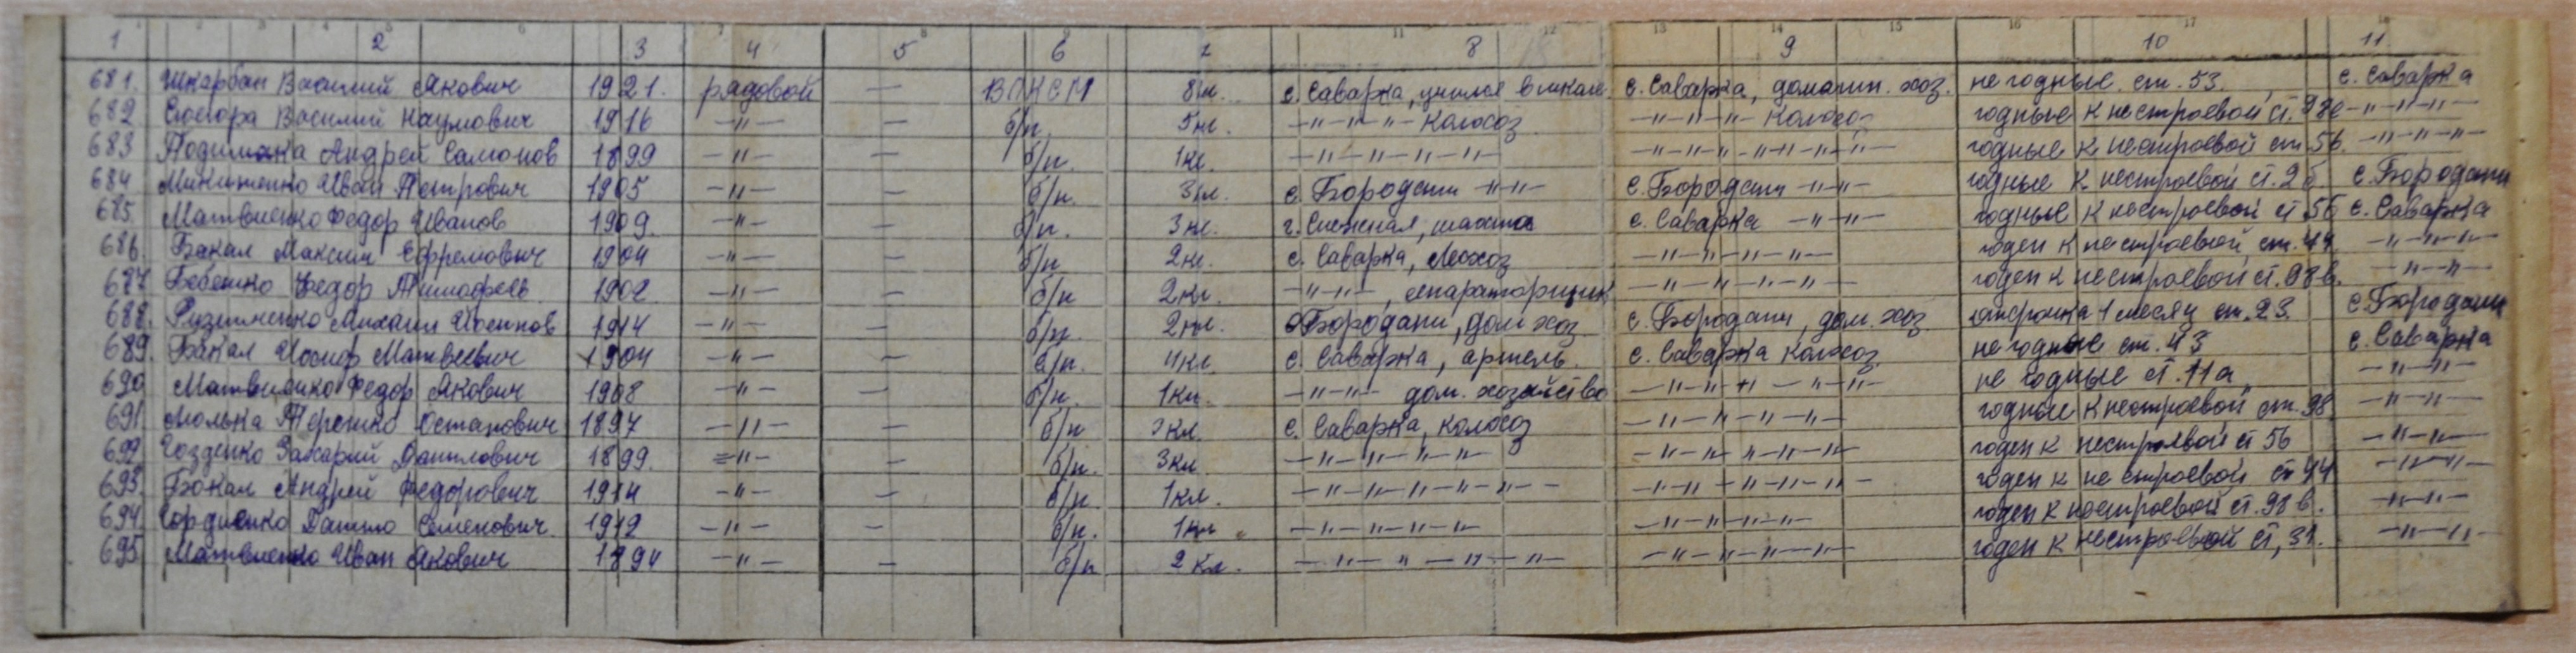 1 2 3 4 5 6 7 8 9 10 11
681. Шкарбан Василий Якович 1921. рядовой — ВЛКСМ 8кл. с. Саварка, учился в школе. с. Саварка, домашн. хоз. не годные ст. 53. с. Саварка
682 Василий Наумович 1916 —"— — б/п. 5кл. —"—"—"— колхоз —"—"—"— колхоз годные к нестроевой ст. 98е —"—"—"—
683 Андрей 1899 —"— — б/п. 1кл. —"—"—"—"— —"—"—"—"—"—"— годные к нестроевой ст 56. —"—"—"—
684 Иван Петрович 1905 —"— — б/п. 3кл. с. Бородани —"—"— с. Бородани —"—"— годные к нестроевой ст. 2б с. Бородани
685 Матвиенко Федор Иванов 1909. —"— — б/п. 3кл. г. Снежная, шахта с. Саварка —"—"— годные к нестроевой ст 56 с. Саварка
686. Бакал Максим Ефремович 1904 —"— — б/п 2кл. с. Саварка, —"—"—"—"— годен к нестроевой, ст. 44. —"—"—"—
687 Бебешко Федор Тимофеев. 1902 —"— — б/п 2кл. —"—"—, —"—"—"—"— годен к нестроевой ст. 98в. —"—"—
688. Михаил Иосипов 1914 —"— — б/п. 2кл. с Бородани, дом хоз с. Бородани, дом. хоз отсрочка 1 месяц ст. 23. с. Бородани
689. Бакал Иосиф Матвеевич 1904 —"— — б/п. 4кл. с. Саварка, артель. с. Саварка колхоз не годные ст. 43 с. Саварка
690 Матвиенко Федор Якович 1908 —"— — б/п. 1кл. —"—"— дом. хозяйство —"—"—"—"—"— не годные ст. 11а —"—"—
691. Остапович 1897 —"— — б/п кл. с. Саварка, колхоз —"—"—"—"— годные к нестроевой ст. 98 —"—"—
699 Гозденко Захарий Данилович 1899. —"— — б/п. 3кл. —"—"—"—"— —"—"—"—"—"— годен к нестроевой ст 56 —"—"—
693. Бокал Андрей Федорович 1914 —"— — б/п. 1кл. —"—"—"—"—"— —"—"—"—"—"— годен к не строевой ст 44 —"—"—
694. Гордиенко Данило Семенович. 1912 —"— — б/п. 1кл —"—"—"—"— —"—"—"—"— годен к нестроевой ст. 98 в. —"—"—
695 Матвиенко Иван Якович 1894 —"— — б/п 2кл. —"—"—"—"— —"—"—"—"— годен к нестроевой ст, 31. —"—"—